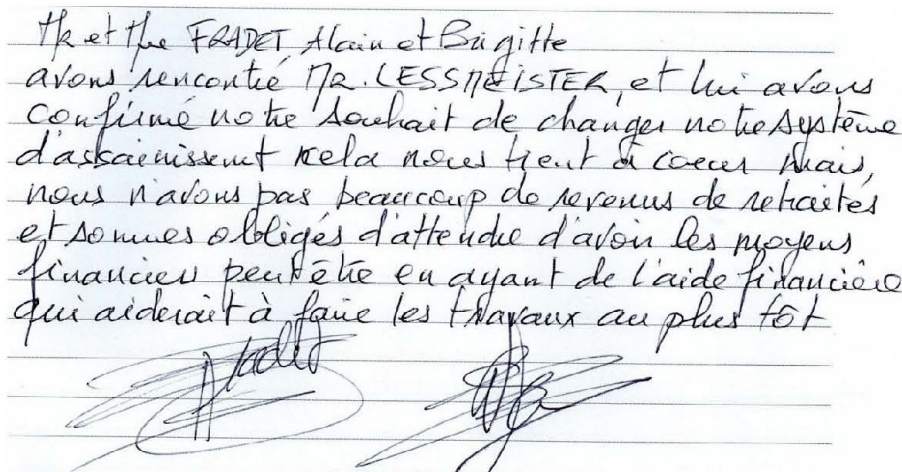 Mr et Mme FRADET Alain et Brigitte
avons rencontré MR. LESSMEISTER, et lui avons
confirmé notre souhait de changer notre système
d'assainissemt cela nous tient à coeur mais,
nous n'avons pas beaucoup de revenus de retraités
et sommes obligés d'attendre d'avoir les moyens
financiers peut être en ayant de l'aide financière
qui aiderait à faire les travaux au plus tôt